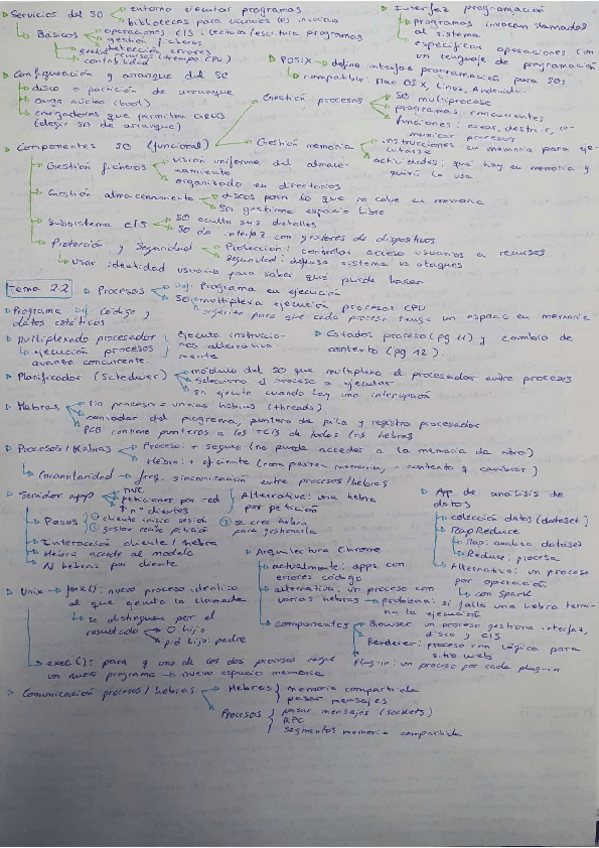 Servicios del SO
entorno ejecutar programas
bibliotecas para usuarios
Básicos
operaciones E/S: lectura/escritura programas
gestión ficheros
detección errores
Interfaz programación
programas invocan llamadas al sistema
especifican operaciones con un lenguaje de programación
POSIX → define interfaz programación para SOs
compatible: Mac OS X, Linux, Android.
Configuración y arranque del SO
disco o partición de arranque
carga núcleo (boot)
cargadores que permiten
(elegir SO de arranque)
Componentes SO (funcional)
Gestión procesos
SO multiproceso
programas concurrentes
funciones: crear, destruir, comunicar procesos
Gestión memoria
instrucciones en memoria para ejecutarse
actividades: qué hay en memoria y quién la usa
Gestión ficheros
visión uniforme del almacenamiento
organizado en directorios
Gestión almacenamiento
discos para lo que no cabe en memoria
SO gestiona espacio libre
Subsistema E/S
SO oculta sus detalles
SO da interfaz con gestores de dispositivos
Protección y Seguridad
Protección: controlar acceso usuarios a recursos
Seguridad: defensa sistema vs ataques
Usar identidad usuario para saber qué puede hacer
Tema 2.2
Procesos
Def: Programa en ejecución
SO multiplexa ejecución procesos CPU
para que cada proceso tenga un espacio en memoria
Programa Def código y
datos estáticos
Multiplexado procesador
ejecución procesos
avanza concurrente.
ejecuta instrucciones alternativamente
Estados proceso (pg 11) y cambio de
contexto (pg 12).
Planificador (Scheduler)
módulo del SO que multiplexa el procesador entre procesos
selecciona el proceso a ejecutar
se ejecuta cuando hay una interrupción
Hebras
Un proceso = varias hebras (threads)
contador del programa, puntero de pila y registros procesador
PCB contiene punteros a los TCBs de todas las hebras
Procesos/Hebras
Proceso: + seguro (no puede acceder a la memoria de otro)
Hebra: + eficiente (comparten memoria, - contexto q cambiar)
Granularidad → frq. sincronización entre procesos/hebras
Servidor app
MVC
peticiones por red
↑ nº clientes
Alternativa: una hebra
por petición
Pasos
① cliente inicia sesión
② gestor recibe petición
③ se crea hebra
para gestionarla
Interacción cliente/hebra
Hebra accede al modelo
N hebras por cliente
App de análisis de
datos
colección datos (dataset)
MapReduce
Map: analiza datasets
Reduce: procesa
Alternativa: un proceso
por operación
con Spark
Arquitectura Chrome
actualmente: apps con
errores código
alternativa: un proceso con
varias hebras → problema: si falla una hebra termina la ejecución
componentes
Browser: un proceso gestiona interfaz,
disco y E/S
Renderer: proceso con lógica para
sitio web
Plug-in: un proceso por cada plug-in
Unix → fork(): nuevo proceso idéntico
al que ejecuta la llamada
se distinguen por el
resultado
0: hijo
p.d hijo: padre
exec(): para q uno de los dos procesos cargue
un nuevo programa → nuevo espacio memoria
Comunicación procesos/hebras
Hebras
memoria compartida
pasar mensajes
Procesos
pasar mensajes (sockets)
RPC
segmentos memoria compartida